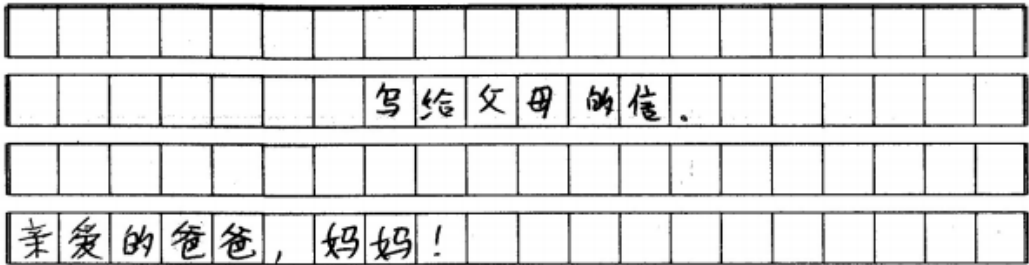 写给父母的信.
亲爱的爸爸,妈妈!